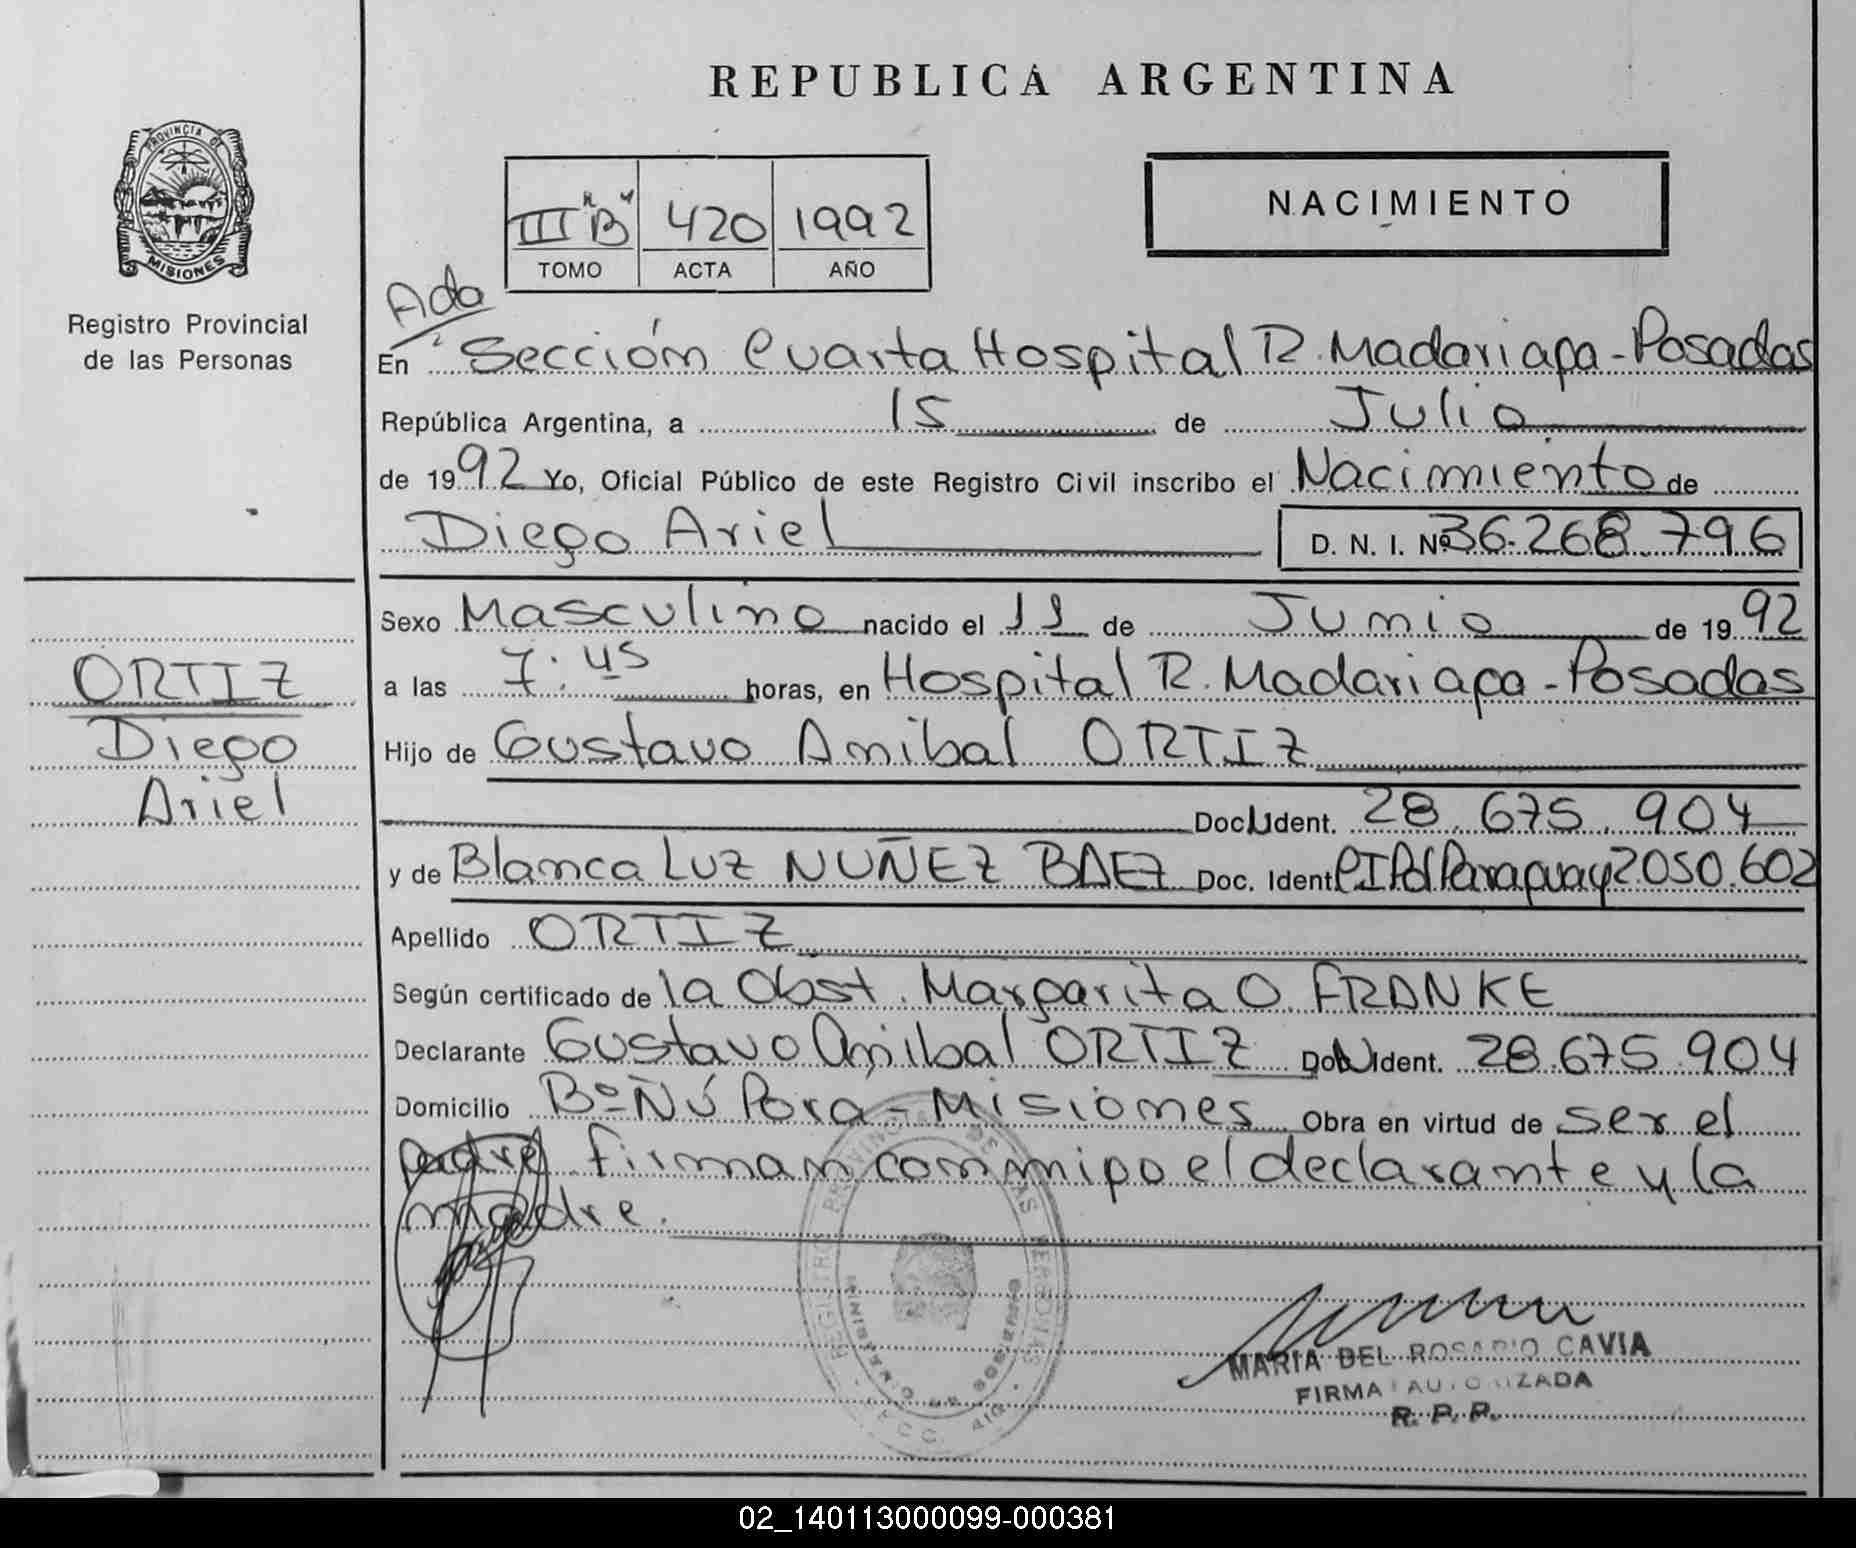 REPUBLICA ARGENTINA
PROVINCIA DE
MISIONES
Registro Provincial
de las Personas
NACIMIENTO
III "B" 420 1992
TOMO ACTA AÑO
Ada
En Sección Cuarta Hospital R. Madariaga - Posadas
República Argentina, a 15 de Julio
de 1992 Yo, Oficial Público de este Registro Civil inscribo el Nacimiento de
Diego Ariel D. N. I. Nº 36.268.796
Sexo Masculino nacido el 11 de Junio de 1992
a las 7:45 horas, en Hospital R. Madariaga - Posadas
Hijo de Gustavo Anibal ORTIZ
Doc. Ident. 28.675.904
y de Blanca Luz NUÑEZ BAEZ Doc. Ident. CIPolParaguay 2050.602
Apellido ORTIZ
Según certificado de la Obst. Margarita O. FRANKE
Declarante Gustavo Anibal ORTIZ Doc. Ident. 28.675.904
Domicilio Bº Ñú Pora - Misiones Obra en virtud de ser el
padre firman conmigo el declarante y la
madre.
ORTIZ
Diego
Ariel
REGISTRO PROVINCIAL DE LAS PERSONAS
MINISTERIO DE GOBIERNO
MARIA DEL ROSARIO CAVIA
FIRMA AUTORIZADA
R. P. P.
02_140113000099-000381